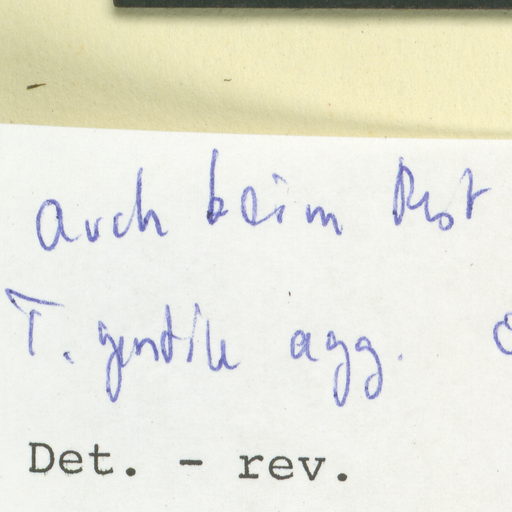 auch beim Rest
T. gentile agg.
Det. - rev.